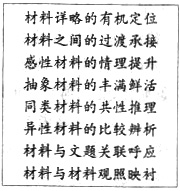 材料详略的有机定位
材料之间的过渡承接
感性材料的情理提升
抽象材料的丰满鲜活
同类材料的共性推理
异性材料的比较辨析
材料与文题关联呼应
材料与材料观照映衬